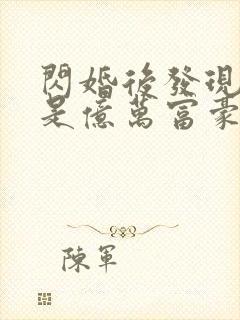 閃婚後發現
是億萬富豪
陳軍